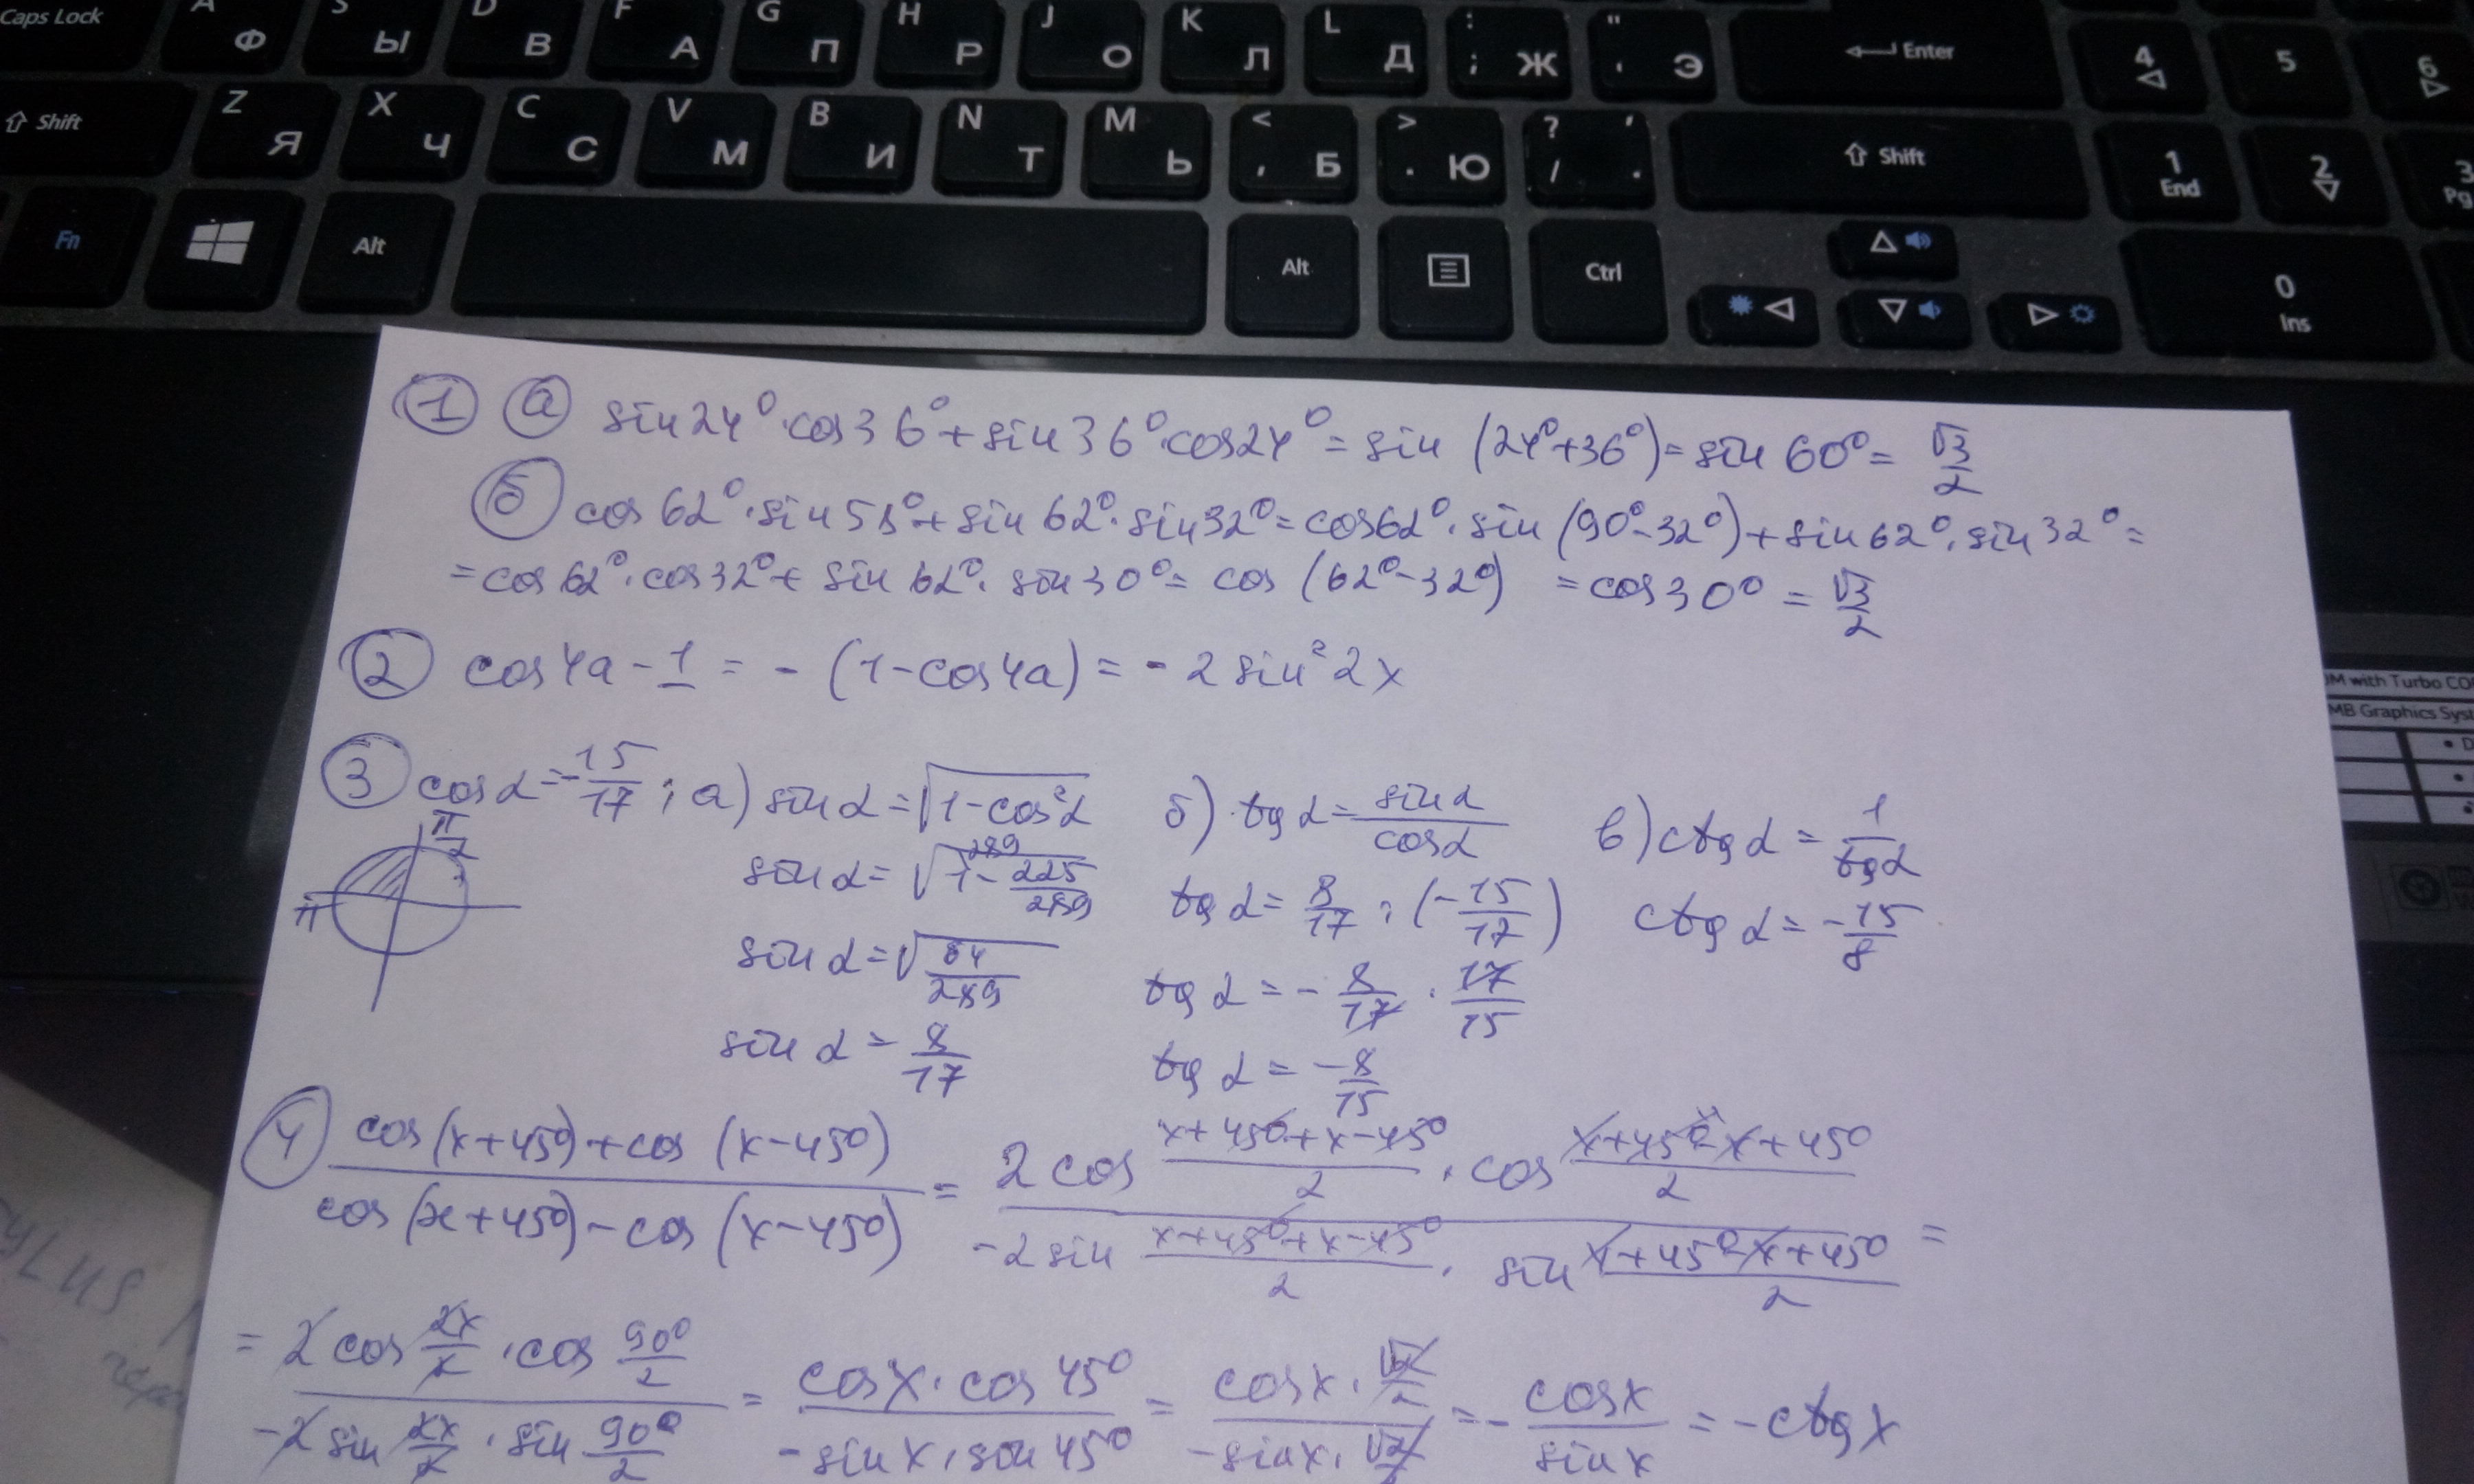 Caps Lock A Ф S Ы D В F А G П H Р J О K Л L Д : ; Ж " ' Э Enter 4 5 6
Shift Z Я X Ч C С V М B И N Т M Ь < , Б > . Ю ? / ' . Shift 1 End 2 3 Pg
Fn Alt Alt Ctrl 0 Ins
① ⓐ sin24°·cos36°+sin36°·cos24°=sin (24°+36°)=sin 60°= √3/2
б cos62°·sin58°+sin62°·sin32°=cos62°·sin(90°-32°)+sin62°·sin32°=
=cos62°·cos32°+ sin 62°· sin30°= cos (62°-32°) =cos30° = √3/2
② cos4a-1 = -(1-cos4a)= -2sin²2x
OM with Turbo CO
MB Graphics Syst
③ cosα=-15/17; а) sinα=√(1-cos²α) б) tgα=sinα/cosα в) ctgα=1/tgα
π/2
π
sinα=√(1-225/289) 289 tgα=8/17:(-15/17) ctgα=-15/8
sinα=√(64/289) tgα=-8/17·17/15
sinα=8/17 tgα=-8/15
④ (cos(x+45°)+cos(x-45°))/(cos(x+45°)-cos(x-45°)) = (2cos (x+45°+x-45°)/2 · cos (x+45°-x+45°)/2)/(-2sin (x+45°+x-45°)/2 · sin (x+45°-x+45°)/2) =
= (2cos 2x/2 · cos 90°/2)/(-2sin 2x/2 · sin 90°/2) = (cosx·cos45°)/(-sinx·sin45°) = (cosx·√2/2)/(-sinx·√2/2) =- cosx/sinx = -ctgx